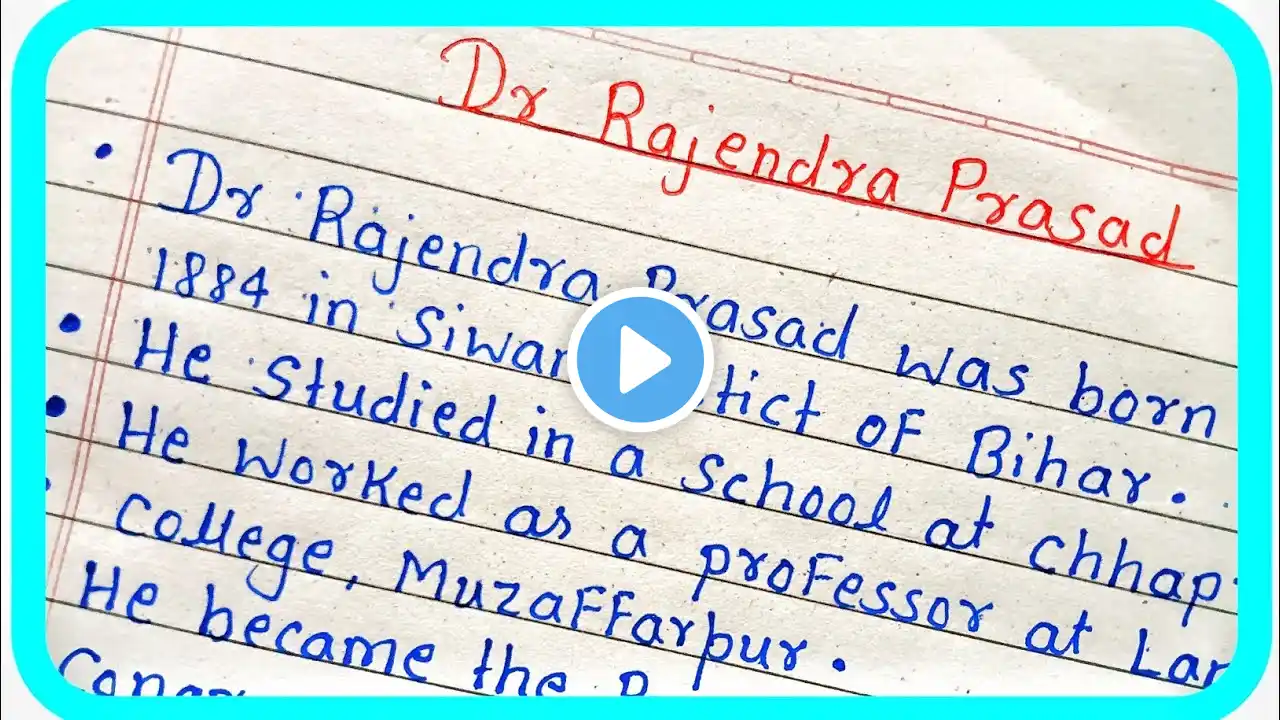 Dr Rajendra Prasad
• Dr Rajendra Prasad was born
1884 in Siwan of Bihar.
• He studied in a school at
• He worked as a professor at
college, Muzaffarpur.
• He became the